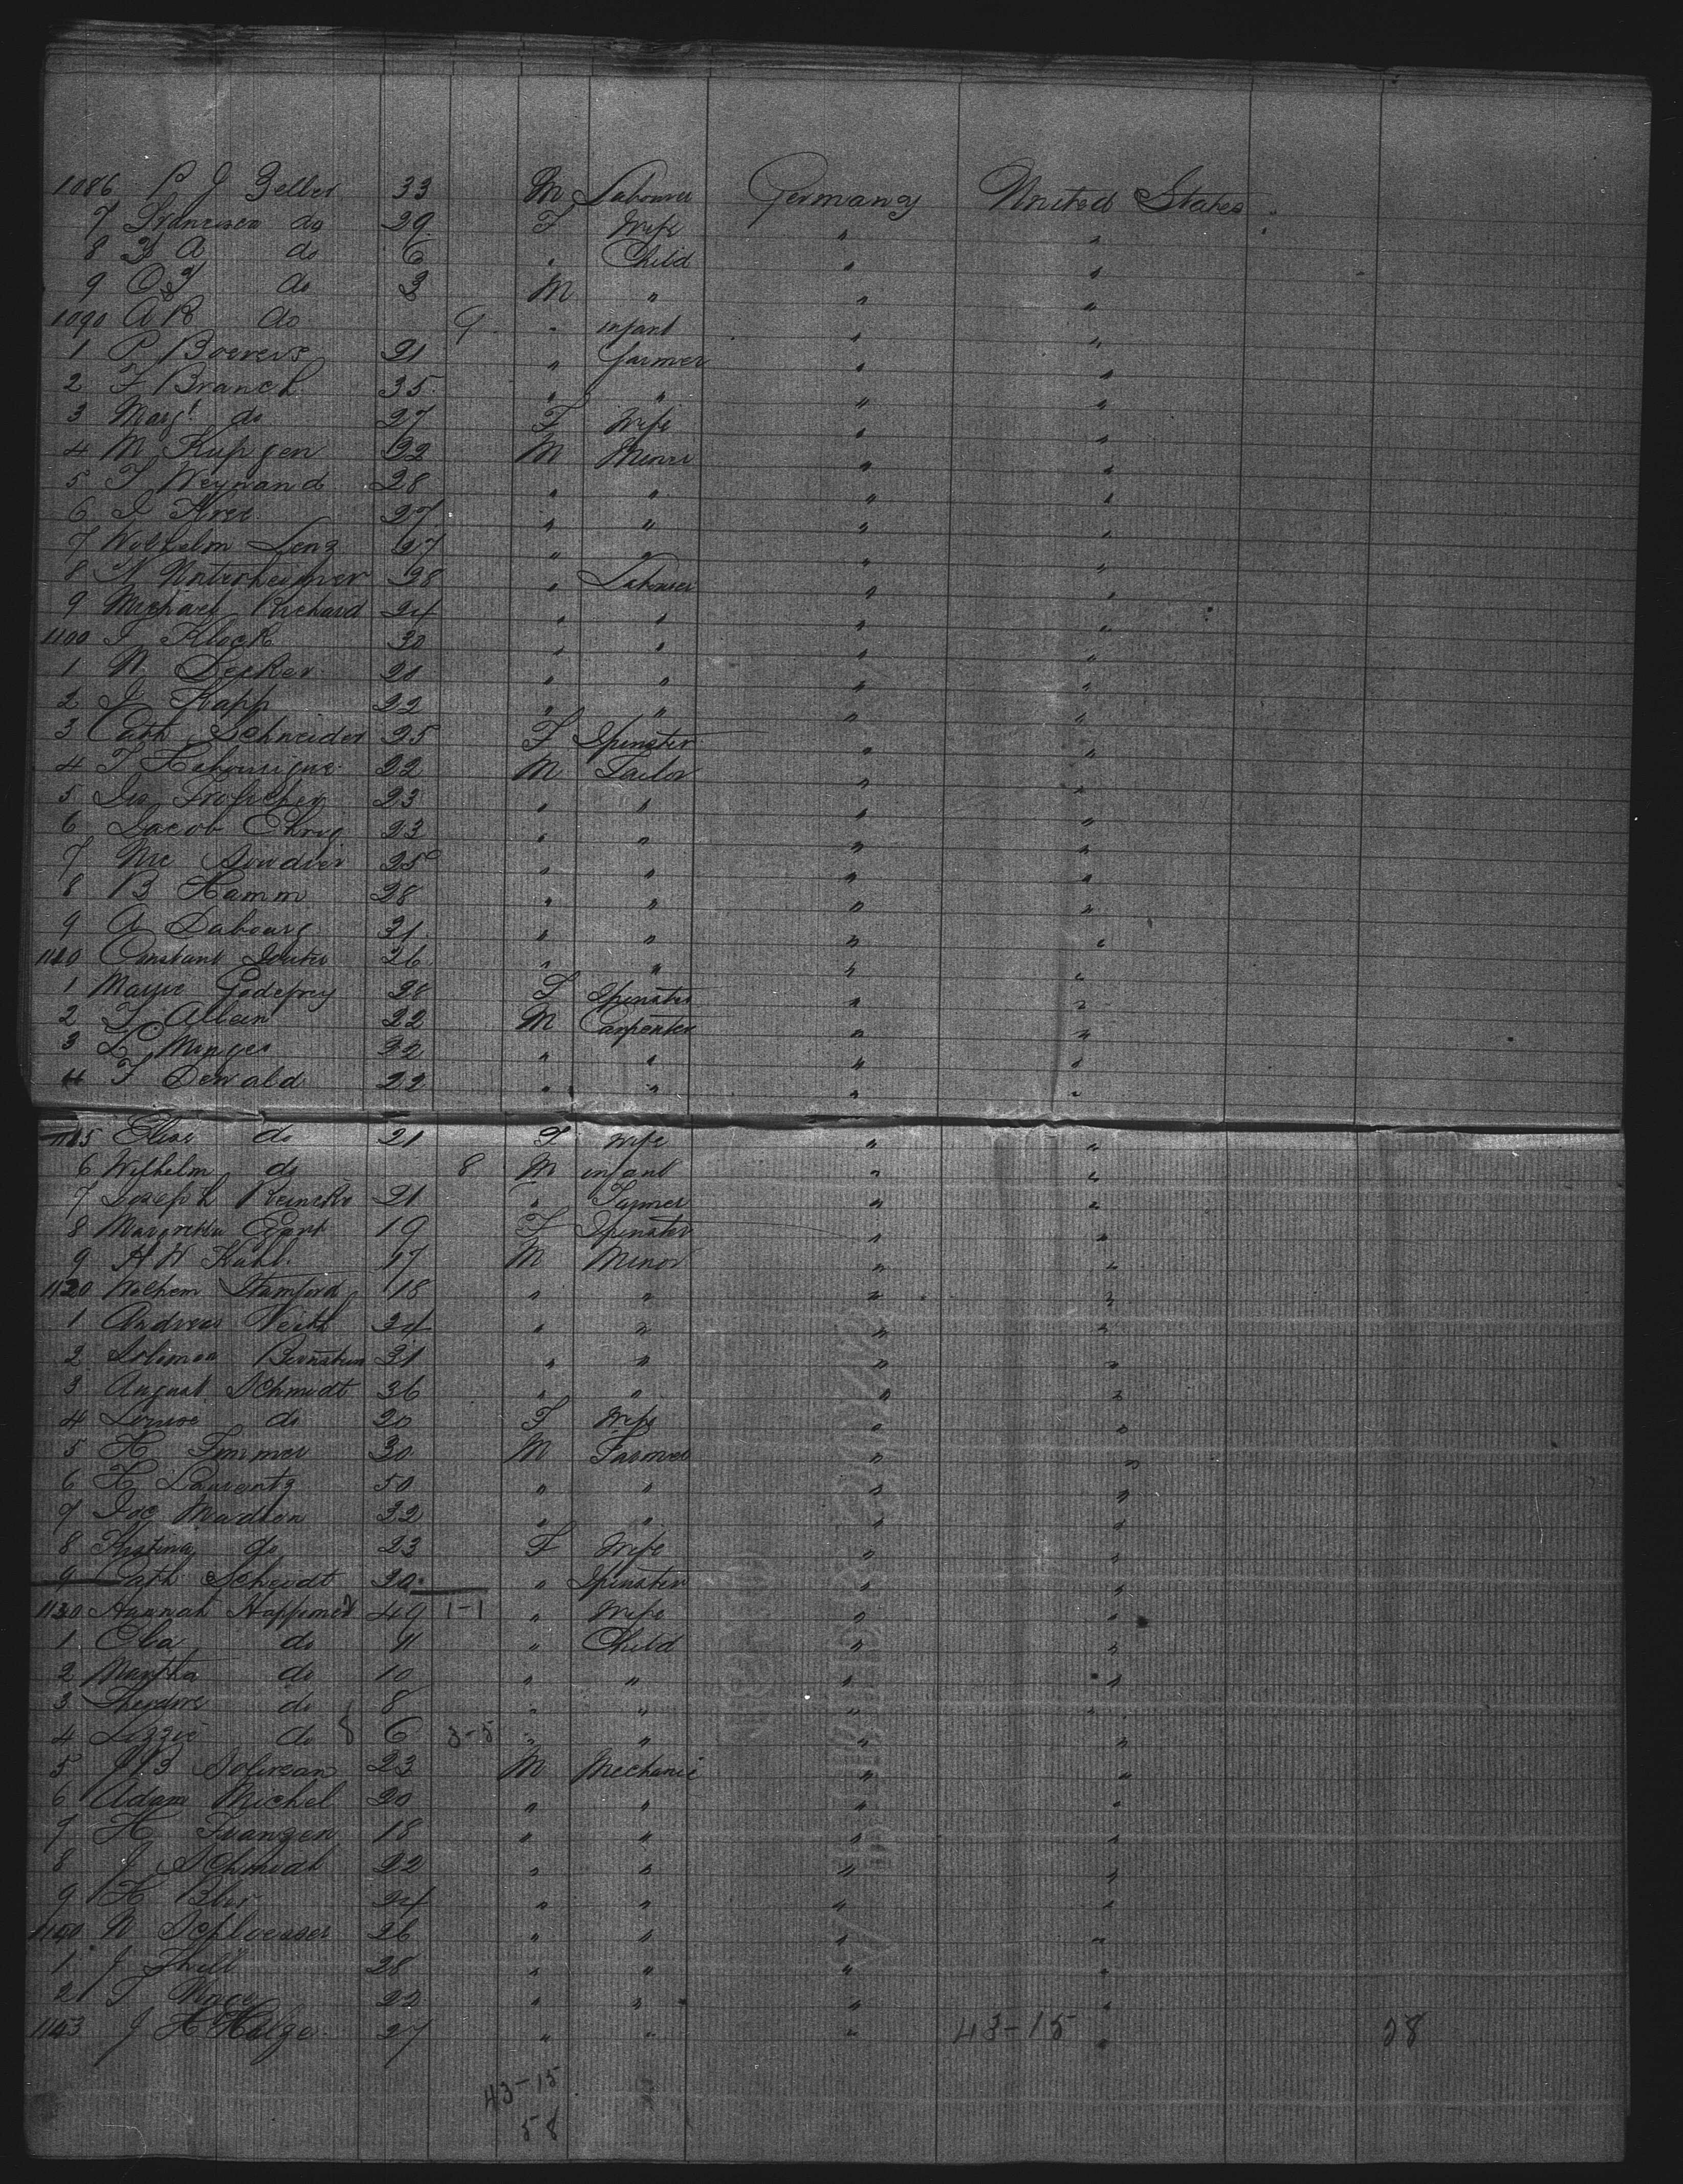 1086 P J Zeller 33 M Labourer Germany United States
7 Francisca do 29 F Wife " "
8 F A do 6 " Child " "
9 O F do 3 M " " "
1090 A R do 9 " infant " "
1 P Boevers 21 " farmer " "
2 F Branch 35 " " " "
3 Marg! do 27 F Wife " "
4 M Kupgen 32 M Minor " "
5 J Weynand 28 " " " "
6 J 27 " " " "
7 Wilhelm Lenz 27 " " " "
8 N Unterheimer 28 " Labourer " "
9 Michael Richard 24 " " " "
1100 J Klock 30 " " " "
1 N Decker 20 " " " "
2 J Kapp 22 " " " "
3 Cath Schneider 25 F Spinster " "
4 T 22 M Tailor " "
5 23 " " " "
6 Jacob Ehrig 23 " " " "
7 25 " " " "
8 B Hamm 28 " " " "
9 A Dabourg 31 " " " "
1110 Constant 26 " " " "
1 Godefrey 28 F Spinster " "
2 J Albein 22 M Carpenter " "
3 L Minges 32 " " " "
4 F Dewald 22 " " " "
1115 Elise do 21 F Wife " "
6 Wilhelm do 8 M infant " "
7 Joseph 21 " Farmer " "
8 Margretha 19 F Spinster " "
9 H W Kuhl 17 M Minor " "
1120 Stamford 18 " " " "
1 Andreas Veith 24 " " " "
2 Solomon Bernstein 31 " " " "
3 August Schmidt 36 " " " "
4 Louise do 20 F Wife " "
5 H Immer 30 M Farmer " "
6 H Laurentz 50 " " " "
7 Joe Madion 32 " " " "
8 Kristina do 23 F Wife " "
9 Cath Scheidt 20 " Spinster " "
1130 Hannah 49 1-1 " Wife " "
1 Elsa do 11 " Child " "
2 Martha do 10 " " " "
3 do 8 " " " "
4 Lizzie do 6 3-5 " " " "
5 J B 23 M Mechanic " "
6 Adam Michel 20 " " " "
7 H 18 " " " "
8 J Schmidt 22 " " " "
9 H 24 " " " "
1140 N Schloesser 26 " " " "
1 J Thill 28 " " " "
2 J 22 " " " "
1143 J H Helge 27 " " " 43-15 " 58
43-15
58